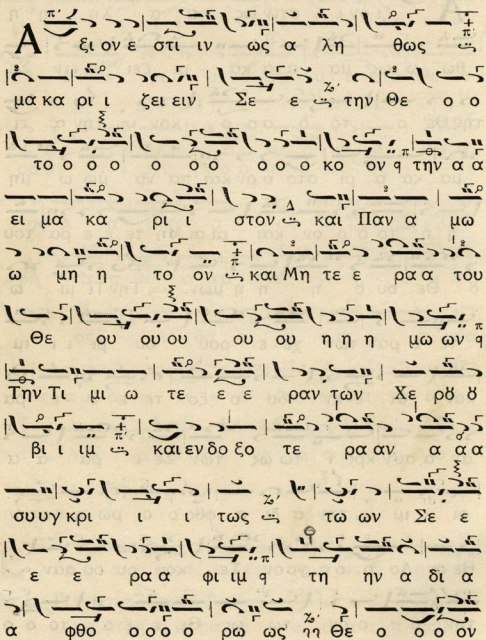 Α ξι ον ε στι ιν ως α λη θως
μα κα ρι ι ζει ειν Σε ε την Θε ο ο
το ο ο ο ο ο ο ο ο κο ον την α α
ει μα κα ρι ι στον και Παν α μω
ω μη η το ον και Μη τε ε ρα α του
Θε ου ου ου ου ου η η η μω ων
Την Τι μι ω τε ε ε ραν των Χε ρȣ ȣ
βι ι ιμ και εν δο ξο τε ρα αν α α α
συ υγ κρι ι ι ι τως τω ων Σε ε
ε ε ρα α φι ιμ τη ην α δι α
α φθο ο ο ο ο ρω ως Θε ο ο ο ον